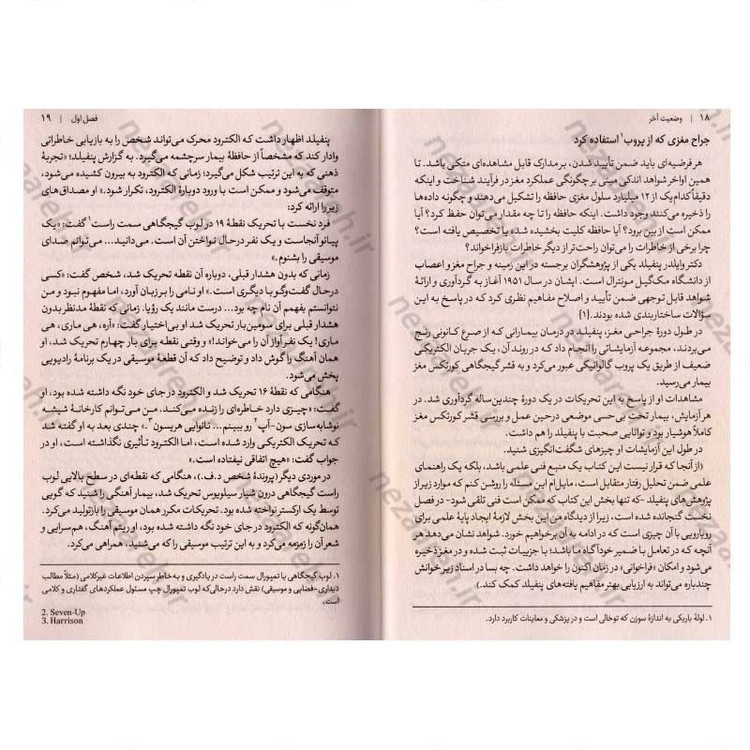 ۱۸ | وضعیت آخر
جراح مغزی که از پروب۱ استفاده کرد:
هر فرضیه‌ای باید ضمن تأیید شدن، بر مدارک قابل مشاهده‌ای متکی باشد. تا
همین اواخر شواهد اندکی مبنی بر چگونگی عملکرد مغز در فرآیند شناخت و اینکه
دقیقاً کدام یک از ۱۲ میلیارد سلول مغزی حافظه را تشکیل می‌دهند و چگونه داده‌ها
را ذخیره می‌کنند وجود داشت. اینکه حافظه را تا چه مقدار می‌توان حفظ کرد؟ آیا
ممکن است از بین برود؟ آیا حافظه کلیت بخشیده شده یا تخصیص یافته است؟
چرا برخی از خاطرات را می‌توان راحت‌تر از دیگر خاطرات بازفراخواند؟
دکتر وایلدر پنفیلد یکی از پژوهشگران برجسته در این زمینه و جراح مغز و اعصاب
از دانشگاه مک‌گیل مونترال است. ایشان در سال ۱۹۵۱ آغاز به گردآوری و ارائهٔ
شواهد قابل توجهی ضمن تأیید و اصلاح مفاهیم نظری کرد که در پاسخ به این
سؤالات ساختاربندی شده بودند.[۱]
در طول دورهٔ جراحی مغز، پنفیلد در درمان بیمارانی که از صرع کانونی رنج
می‌بردند، مجموعه آزمایشاتی را انجام داد که در روند آن، یک جریان الکتریکی
ضعیف از طریق یک پروب گالوانیکی عبور می‌کرد و به قشر گیجگاهی کورتکس مغز
بیمار می‌رسید.
مشاهدات او از پاسخ به این تحریکات در یک دورهٔ چندین‌ساله گردآوری شد. در
هر آزمایش، بیمار تحت بی‌حسی موضعی در حین عمل و بررسی قشر کورتکس مغز
کاملاً هوشیار بود و توانایی صحبت با پنفیلد را هم داشت.
در طول این آزمایشات او چیزهای شگفت‌انگیزی شنید.
(از آنجا که قرار نیست این کتاب یک منبع فنی علمی باشد، بلکه یک راهنمای
علمی ضمن تحلیل رفتار متقابل است، مایل‌ام این مسئله را روشن کنم که موارد زیر از
پژوهش‌های پنفیلد -که تنها بخش این کتاب که ممکن است فنی تلقی شود- در فصل
نخست گنجانده شده است، زیرا از دیدگاه من این بخش لازمهٔ ایجاد پایهٔ علمی برای
رویارویی با آن چیزی است که در ادامه به آن برخواهیم خورد. شواهد نشان می‌دهد هر
آنچه که در تعامل با ضمیر خودآگاه ما باشد؛ با جزییات ثبت شده و در مغز ذخیره
می‌شود و امکان «فراخوانی» در زمان اکنون را خواهد داشت. چه بسا در اسناد زیر خوانش
چندباره می‌تواند به ارزیابی بهتر مفاهیم یافته‌های پنفیلد کمک کند.)
۱. لولهٔ باریکی به اندازهٔ سوزن که توخالی است و در پزشکی و معاینات کاربرد دارد.
فصل اول | ۱۹
پنفیلد اظهار داشت که الکترود محرک می‌تواند شخص را به بازیابی خاطراتی
وادار کند که مشخصاً از حافظهٔ بیمار سرچشمه می‌گیرد. به گزارش پنفیلد؛ «تجربهٔ
ذهنی که به این ترتیب شکل می‌گیرد؛ زمانی که الکترود به بیرون کشیده می‌شود،
متوقف می‌شود و ممکن است با ورود دوبارهٔ الکترود، تکرار شود.» او مصداق‌های
زیر را ارائه کرد:
فرد نخست با تحریک نقطهٔ ۱۹ در لوب گیجگاهی سمت راست۱ گفت: «یک
پیانو آنجاست و یک نفر درحال نواختن آن است. می‌دانید... می‌توانم صدای
موسیقی را بشنوم.»
زمانی که بدون هشدار قبلی، دوباره آن نقطه تحریک شد، شخص گفت: «کسی
درحال گفت‌وگو با دیگری است.» او نامی را بر زبان آورد، اما مفهوم نبود و من
نتوانستم بفهمم آن نام چه بود... درست مانند یک رؤیا. زمانی که نقطهٔ مدنظر بدون
هشدار قبلی برای سومین‌بار تحریک شد او بی‌اختیار گفت: «آره، هی ماری، هی
ماری! یک نفر آواز آن را می‌خواند!» و وقتی نقطه برای بار چهارم تحریک شد، او
همان آهنگ را گوش داد و توضیح داد که آن قطعهٔ موسیقی در یک برنامهٔ رادیویی
پخش می‌شود.
هنگامی که نقطهٔ ۱۶ تحریک شد و الکترود در جای خود نگه داشته شده بود، او
گفت: «چیزی دارد خاطره‌ای را زنده می‌کند. من می‌توانم کارخانهٔ شیشه
نوشابه‌سازی سون-آپ۲ رو ببینم... نانوایی هریسون۳.» چندی بعد به او گفته شد
که تحریک الکتریکی وارد شده است، اما الکترود تأثیری نگذاشته است، او در
جواب گفت: «هیچ اتفاقی نیفتاده است.»
در موردی دیگر (پروندهٔ شخص د.ف.)، هنگامی که نقطه‌ای در سطح بالایی لوب
راست گیجگاهی درون شیار سیلویوس تحریک شد، بیمار آهنگی را شنید که گویی
توسط یک ارکستر نواخته شده بود. تحریکات مکرر همان موسیقی را بازتولید می‌کرد.
همان‌گونه که الکترود در جای خود نگه داشته شده بود، او ریتم آهنگ، هم‌سرایی و
شعر آن را زمزمه می‌کرد و به این ترتیب موسیقی را که می‌شنید، همراهی می‌کرد.
۱. لوب گیجگاهی یا تمپورال سمت راست در یادگیری و به خاطر سپردن اطلاعات غیرکلامی (مثلاً مطالب
دیداری-فضایی و موسیقی) نقش دارد درحالی‌که لوب تمپورال چپ مسئول عملکردهای گفتاری و کلامی
است.
2. Seven-Up
3. Harrison
nezaareh.ir